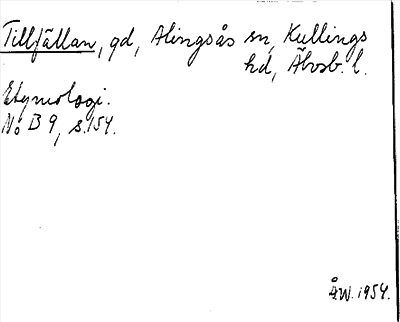 Tillfällan, gd, Alingsås sn, Kullings
hd, Älvsb. l.
Etymologi.
No B 9, s. 154.
Å.W. 1954.